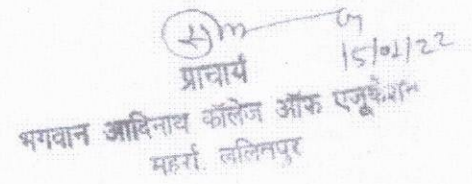 15/01/22
प्राचार्य
भगवान आदिनाथ कॉलेज ऑफ एजूकेशन
महर्रा. ललितपुर